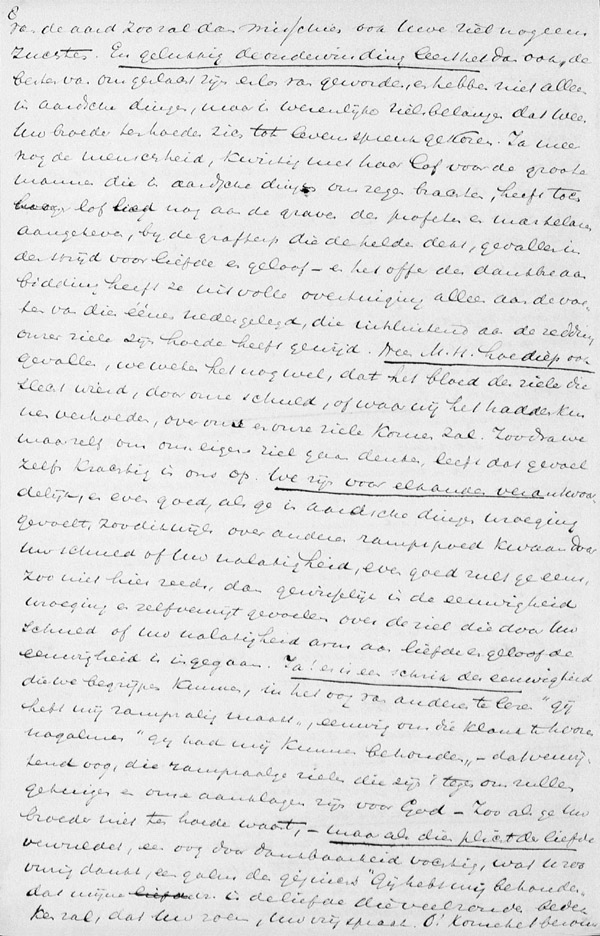 8
van de aard zoo zal dan misschien ook Uwe ziel nog eens
zuchten. En gelukkig de ondervinding leert het dan ook, de
besten van ons geslacht zijn er los van geworden, en hebben niet alleen
in aardsche dingen, maar in wezenlijke zielsbelangen dat wees
Uw broeder ten hoeder zich tot levensspreuk gekozen. Ja mee
nog de menschheid, kwistig met haar lof voor de groote
mannen die in aardsche dingen ons zegen brachten, heeft toch
lof lied nog aan de graven der profeten en martelaren
aangeheven, bij de grafterp die de helden dekt, gevallen in
den strijd voor liefde en geloof – en het offer der dankbaar
bidding heeft ze uit volle overtuiging alleen aan de voe-
ten van die éénen nedergelegd, die uitsluitend aan de redding
onzer ziele zijn hoede heeft gewijd. Nee M.H. hoe diep ook
gevallen, we weten het nog wel, dat het bloed der ziele die
slecht wierd, door onze schuld, of waar wij het hadden kun
nen verhoeden, over ons en onze ziele komen zal. Zoodra we
maar zelf om ons eigen ziel gaan denken, leeft dat gevoel
zelfs krachtig in ons op. We zijn voor elkander verantwoor-
delijk, en even goed, als ge in aardsche dingen wroeging
gevoelt, zoo dikwijls over anderen rampspoed kwam door
Uw schuld of Uw nalatigheid, even goed zult ge eens,
zoo niet hier reeds, dan gewisselijk in de eeuwigheid
wroeging en zelfverwijt gevoelen over de ziel die door Uw
schuld of Uw nalatigheid arm aan liefde en geloof de
eeuwigheid is ingegaan. Ja! er is een schrik der eeuwigheid
die we begrijpen kunnen, in het oog van anderen te lezen "gij
hebt mij rampzalig gemaakt", eeuwig om die klank te hooren
nagalmen "gij had mij kunnen behouden" – dat verwij-
tend oog, die rampzalige zielen die zijn 't tegen ons zullen
getuigen en onze aanklagers zijn voor God – zoo als ge Uw
broeder niet ten hoede waart, – maar als die plicht der liefde
vervuldet, een oog door dankbaarheid vochtig, wat U zoo
vurig dankt, een galm der zijnen "Gij hebt mij behouden"
dat in de liefde die veel zonden bedek-
ken zal, dat Uw roem, Uw vrijspraak. O! Kome het